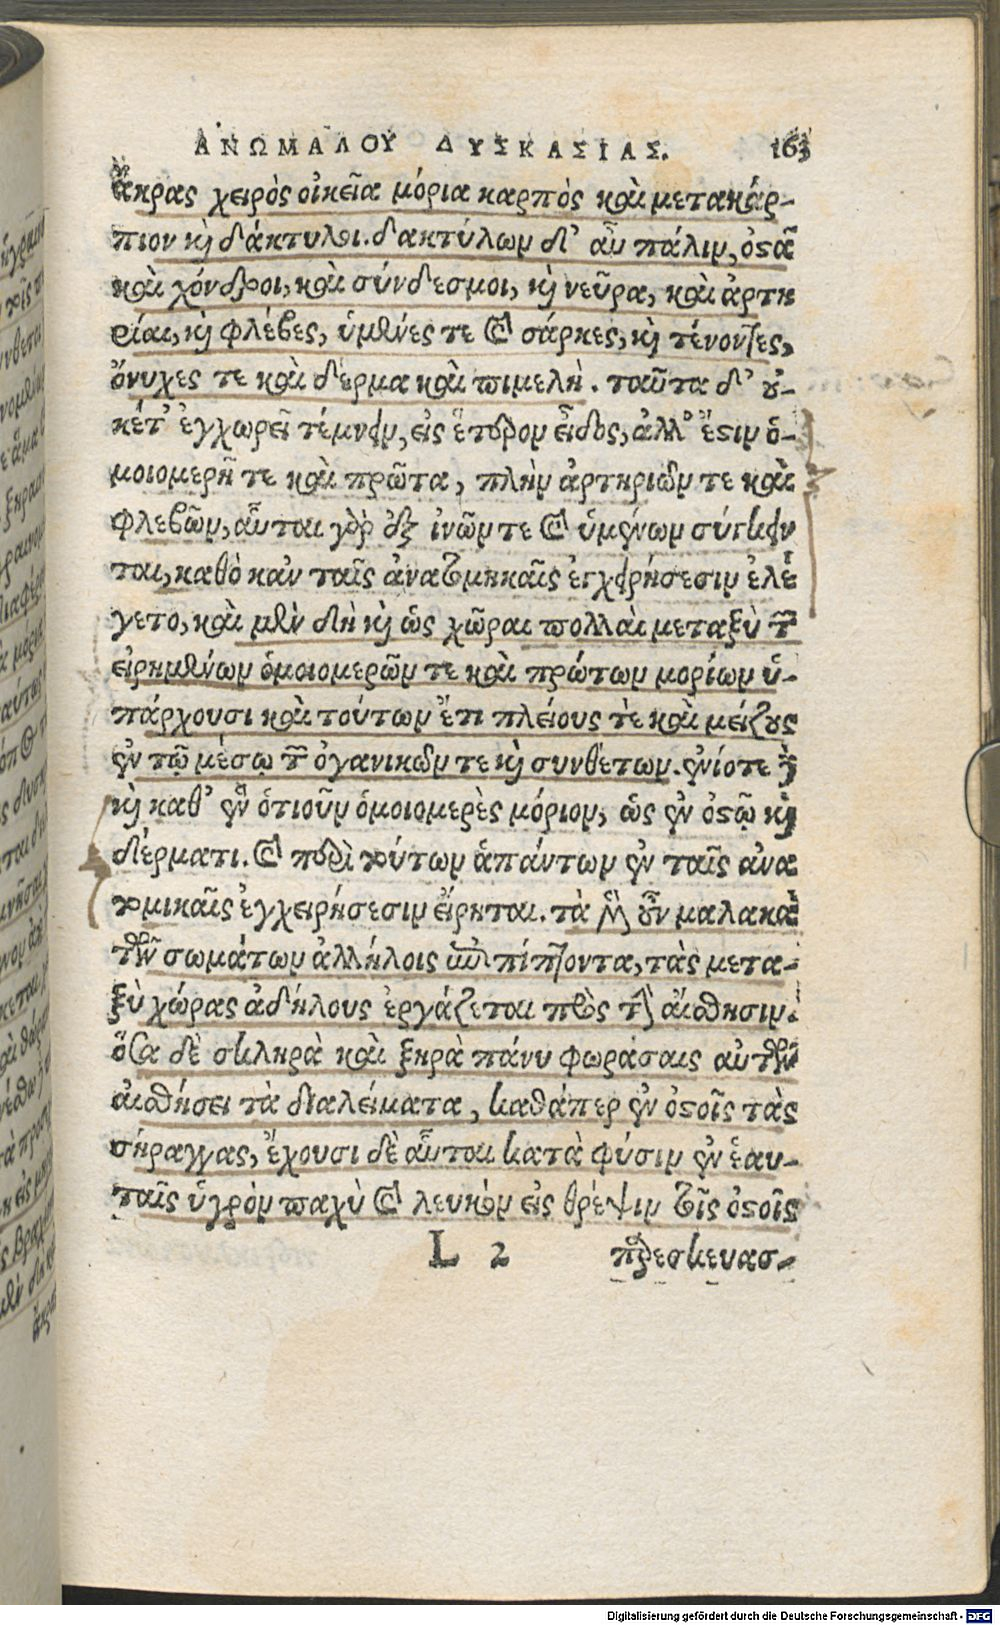 ΑΝΩΜΑΛΟΥ ΔΥΣΚΑΣΙΑΣ. 163
ἄκρας χειρὸς οἰκεῖα μόρια καρπὸς καὶ μετακάρ-
πιον κὶ δάκτυλοι. δακτύλων δ' αὖ πάλιν, ὀστᾶ
καὶ χόνδροι, καὶ σύνδεσμοι, κὶ νεῦρα, καὶ ἀρτη
ρίαι, κὶ φλέβες, ὑμένες τε καὶ σάρκες, κὶ τένοντες,
ὄνυχες τε καὶ δέρμα καὶ πιμελὴ. ταῦτα δ' οὐ-
κέτ' ἐγχωρεῖ τέμνειν, εἰς ἕτερον εἶδος, ἀλλ' ἔστιν ὁ-
μοιομερῆ τε καὶ πρῶτα, πλὴν ἀρτηριῶν τε καὶ
φλεβῶν, αὗται γὰρ ἐξ ἰνῶν τε καὶ ὑμένων σύγκειν
ται, καθὸ κἀν ταῖς ἀνατομηκαῖς ἐγχειρήσεσιν ἐλέ
γετο, καὶ μὲν δὴ κὶ ὡς χῶραι πολλαὶ μεταξὺ τῶν
εἰρημένων ὁμοιομερῶν τε καὶ πρώτων μορίων ὑ-
πάρχουσι καὶ τούτων ἔτι πλείους τὲ καὶ μείζους
ἐν τῷ μέσῳ τῶν ὀγανικῶν τε κὶ συνθέτων. ἐνίοτε δὲ
κὶ καθ' ἓν ὁτιοῦν ὁμοιομερὲς μόριον, ὡς ἐν ὀστῷ κὶ
δέρματι. καὶ περὶ τούτων ἁπάντων ἐν ταῖς ἀνα
τομικαῖς ἐγχειρήσεσιν εἴρηται. τὰ μὲν οὖν μαλακὰ
τῶν σωμάτων ἀλλήλοις ἐπιπίπτοντα, τὰς μετα-
ξὺ χώρας ἀδήλους ἐργάζεται πρὸς τὴν αἴσθησιν.
ὅσα δὲ σκληρὰ καὶ ξηρὰ πάνυ φωράσαις αὐτῶν
αἰσθήσει τὰ διαλείματα, καθάπερ ἐν ὀστοῖς τὰς
σήραγγας, ἔχουσι δὲ αὗται κατὰ φύσιν ἐν ἑαυ-
ταῖς ὑγρὸν παχὺ καὶ λευκὸν εἰς θρέψιν τοῖς ὀστοῖς
L 2 παρεσκευασ-
Digitalisierung gefördert durch die Deutsche Forschungsgemeinschaft - DFG